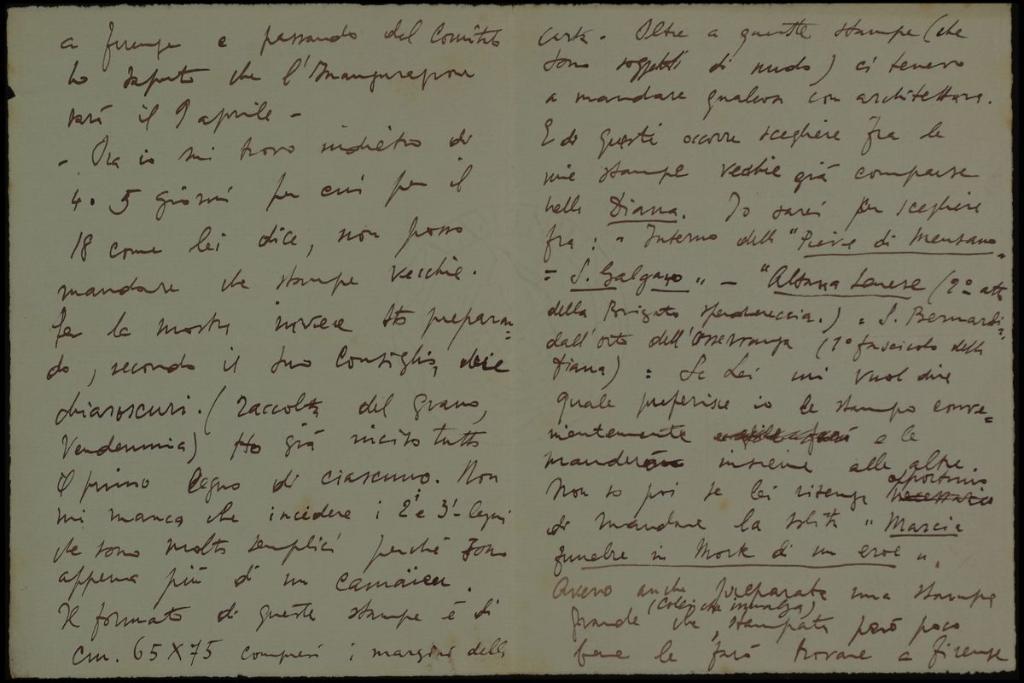 a Firenze e passando dal Comitato
ho saputo che l'Inaugurazione
sarà il 9 aprile -
- Ora io mi trovo indietro di
4 o 5 giorni per cui per il
18 come lei dice, non posso
mandare che stampe vecchie.
Per la mostra invece sto preparan=
do, secondo il suo consiglio, due
chiaroscuri. (Raccolta del grano,
Vendemmia) Ho già inciso tutto
il primo legno di ciascuno. Non
mi manca che incidere i 2i e 3i legni
che sono molto semplici perché sono
appena più di un camaïeu.
Il formato di queste stampe è di
cm. 65X75 compresi i margini della
carta. Oltre a queste stampe (che
sono soggetti di nudo) ci tenevo
a mandare qualcosa con architetture.
E di questi occorre scegliere fra le
mie stampe vecchie già comparse
nella Diana. Io sarei per scegliere
fra: "Interno dell "Pieve di Mensano
= S. Galgano" - "Altana Senese (2o atto
della Brigata Spendereccia.) = S. Bernardi-
dall'orto dell'Osservanza (1o fascicolo della
Diana) = Se Lei mi vuol dire
quale preferisce io le stampo conve=
nientemente e le
manderò insieme alle altre.
Non so poi se lei ritenga opportuno necessario
di mandare la solita "Marcia
funebre in Morte di un eroe".
Avevo anche preparata una stampa
grande (Colei che innalza) che, stampata però poco
bene le farò trovare a Firenze